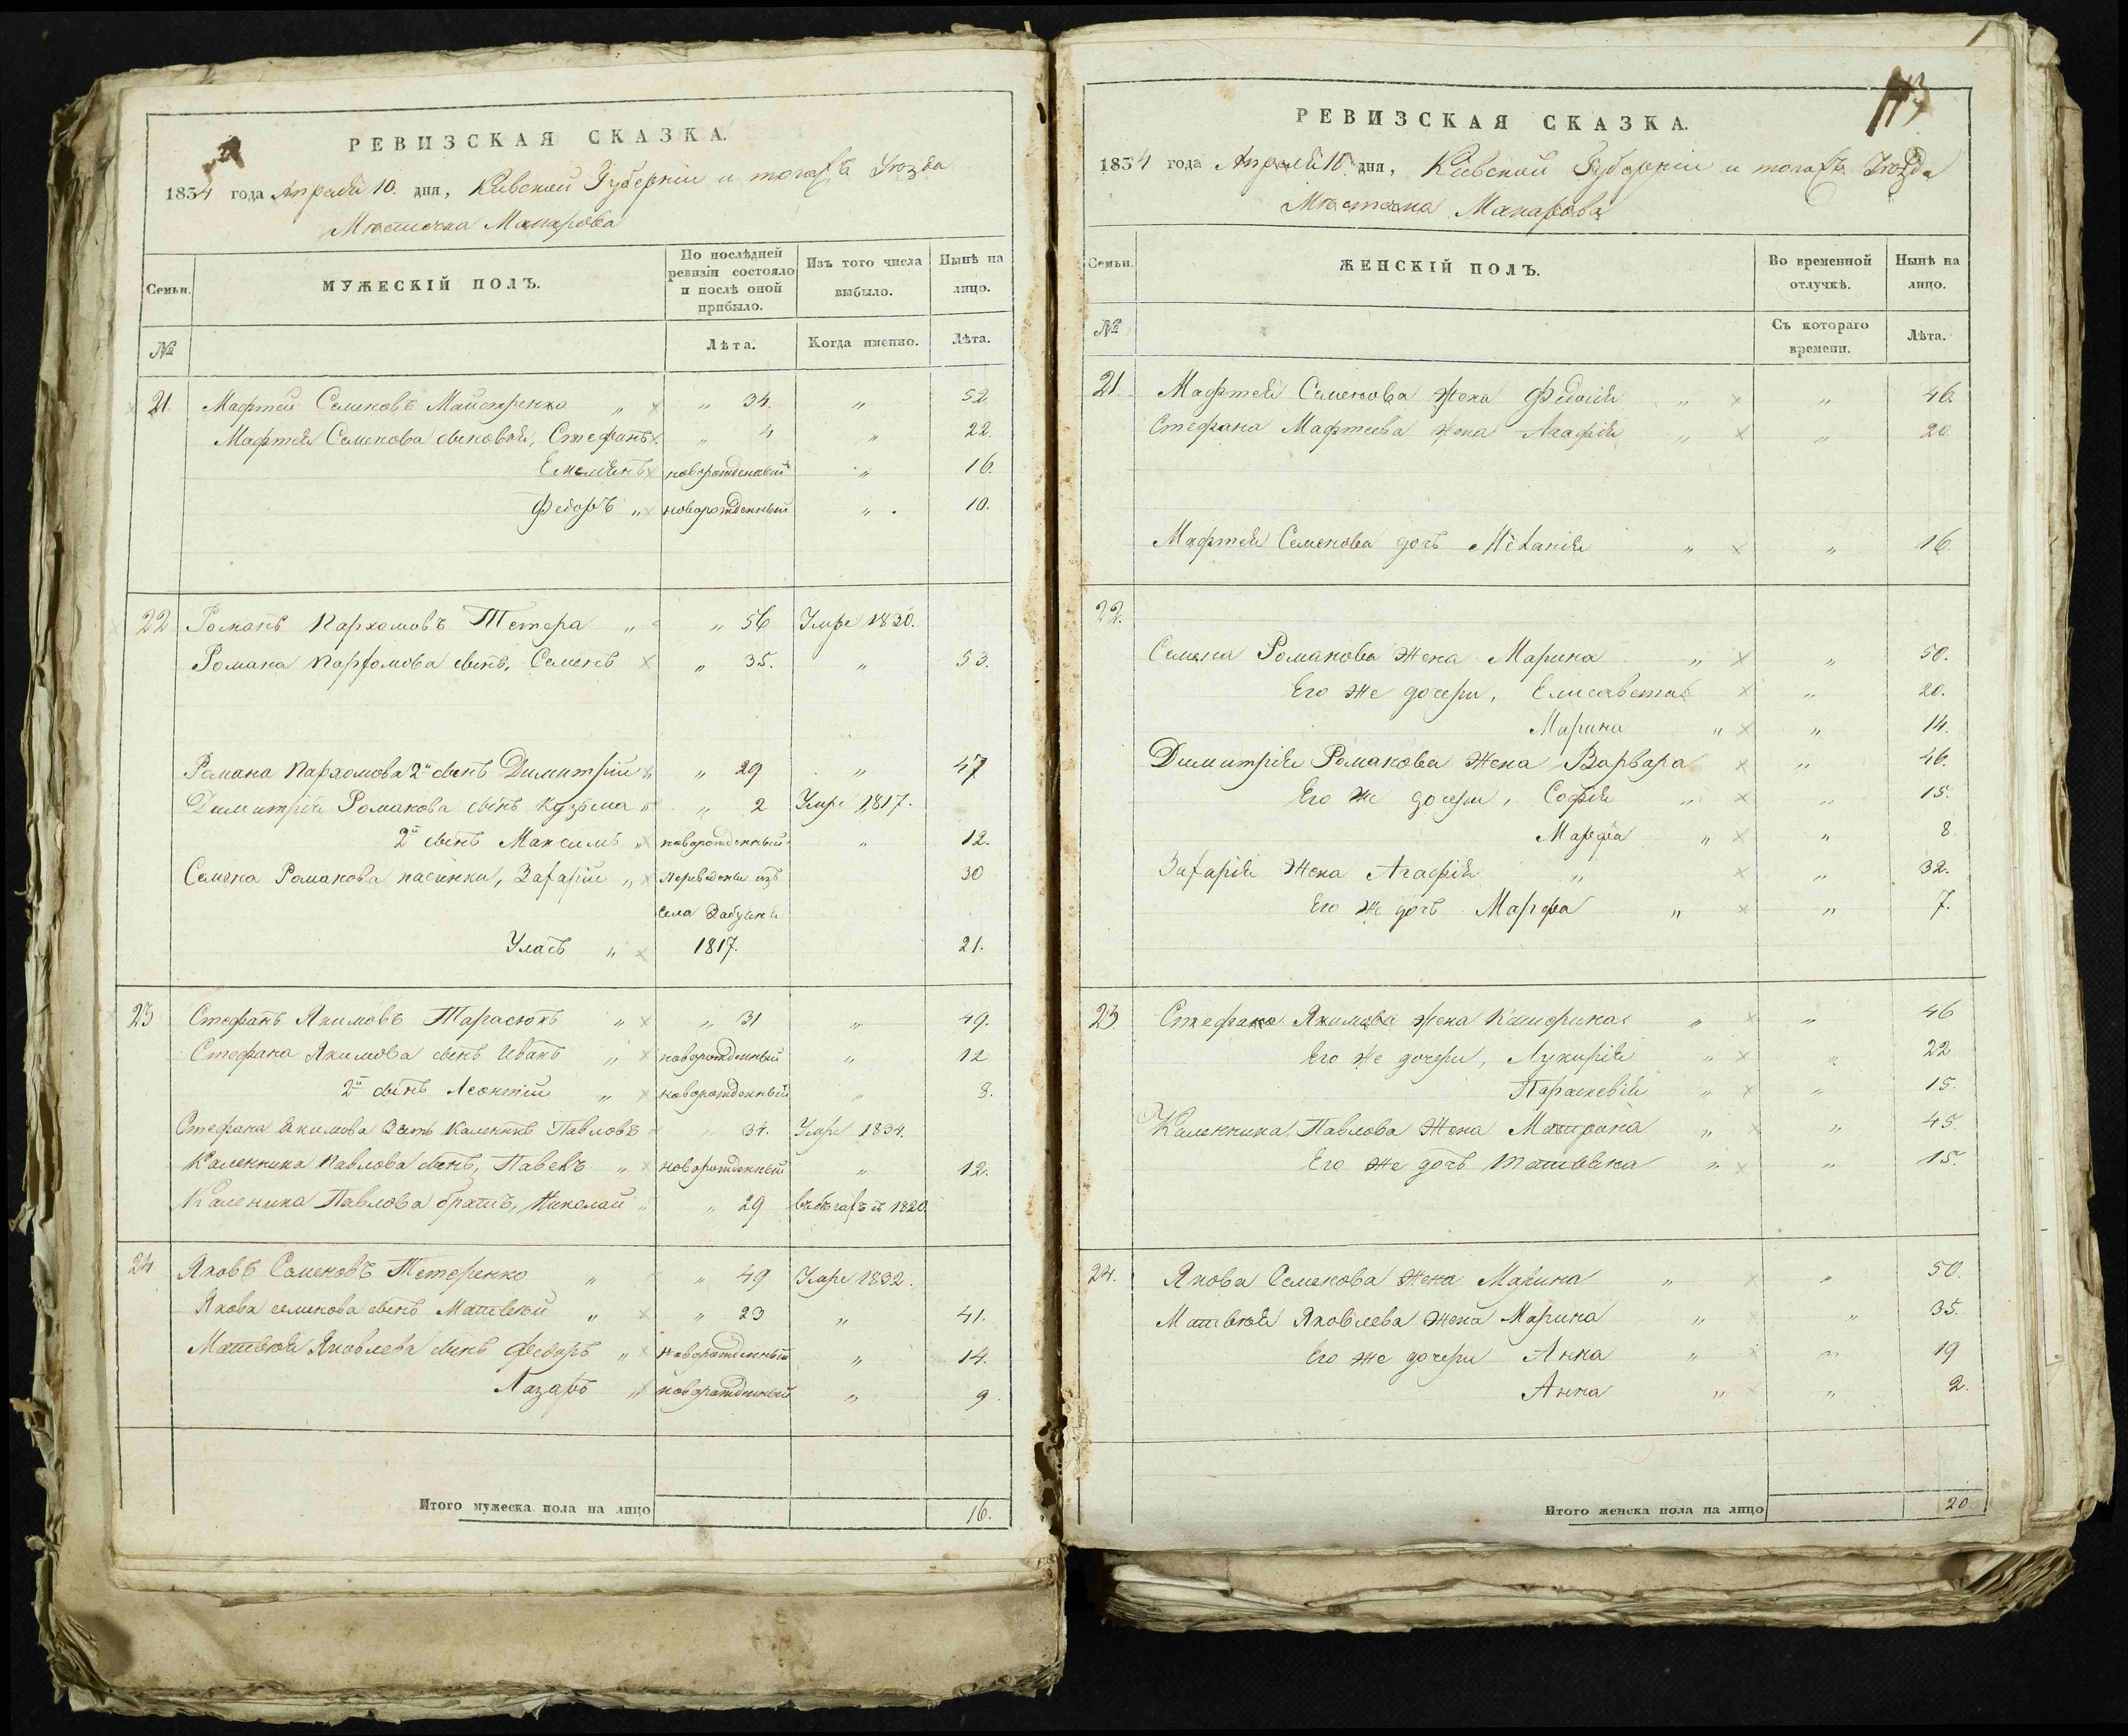 РЕВИЗСКАЯ СКАЗКА.
1834 года Апреля 10. дня, Киевской Губернiи и тогожъ Уѣзда
Мѣстечка Макарова
Семьи.
МУЖЕСКІЙ ПОЛЪ.
По послѣдней ревизіи состояло и послѣ оной прибыло.
Изъ того числа выбыло.
Нынѣ на лицо.
№
Лѣта.
Когда именно.
Лѣта.
21. Мафтей Семеновъ Майстренко " " 34. " 52.
Мафтея Семенова сыновья, Стефанъ " 4 " 22.
Емельянъ новорожденный " 16.
Федоръ " новорожденный " 10.
22 Романъ Пархомовъ Тетера " " 56 Умре 1830.
Романа Пархомова сынъ, Семенъ " 35. " 53.
Романа Пархомова 2й сынъ Димитрій " " 29 " 47
Димитрія Романова сынъ Кузьма " " 2 Умре 1817.
2й сынъ Максимъ " новорожденный " 12.
Семена Романова пасынки, Захарій " переведены изъ 30
села
Уласъ " 1817. 21.
23 Стефанъ Якимовъ Тарасюкъ " " 31 " 49.
Стефана Якимова сынъ Иванъ " новорожденный " 12
2й сынъ Леонтій " новорожденный " 8.
Стефана Якимова зять Каленикъ Павловъ " 34. Умре 1834.
Каленика Павлова сынъ, Павелъ " новорожденный " 12.
Каленика Павлова братъ, Николай " " 29 въ бѣгахъ съ 1820
24 Яковъ Семеновъ Тетеренко " " 49 Умре 1832.
Якова Семенова сынъ Матвѣй " " 23 " 41.
Матвѣя Яковлева сынъ Федоръ " новорожденный " 14.
Лазарь " новорожденный " 9.
Итого мужеска пола на лицо 16.
РЕВИЗСКАЯ СКАЗКА.
1834 года Апреля 10. дня, Кіевской Губерніи и тогожъ Уѣзда
Мѣстечка Макарова
Семьи.
ЖЕНСКІЙ ПОЛЪ.
Во временной отлучкѣ.
Нынѣ на лицо.
№
Съ котораго времени.
Лѣта.
21. Мафтея Семенова жена Федосія " " 46.
Стефана Мафтеева жена Агафія " " 20.
Мафтея Семенова дочь Меланія " " 16.
22.
Семена Романова жена Марина " " 50.
Его же дочери, Елисавета " 20.
Марина " " 14.
Димитрія Романова жена Варвара " 46.
Его же дочери, Софія " " 15.
Марфа " " 8
Захарія жена Агафія " " 32.
Его же дочь Марфа " " 7.
23 Стефана Якимова жена Катерина " " 46
Его же дочери, Лукирія " " 22
Параскевія " " 15.
Каленника Павлова жена Матрона " " 45.
Его же дочь Татьяна " " 15.
24. Якова Семенова жена " " 50.
Матвѣя Яковлева жена Марина " " 35.
Его же дочери Анна " " 19
Анна " " 2.
Итого женска пола на лицо 20.